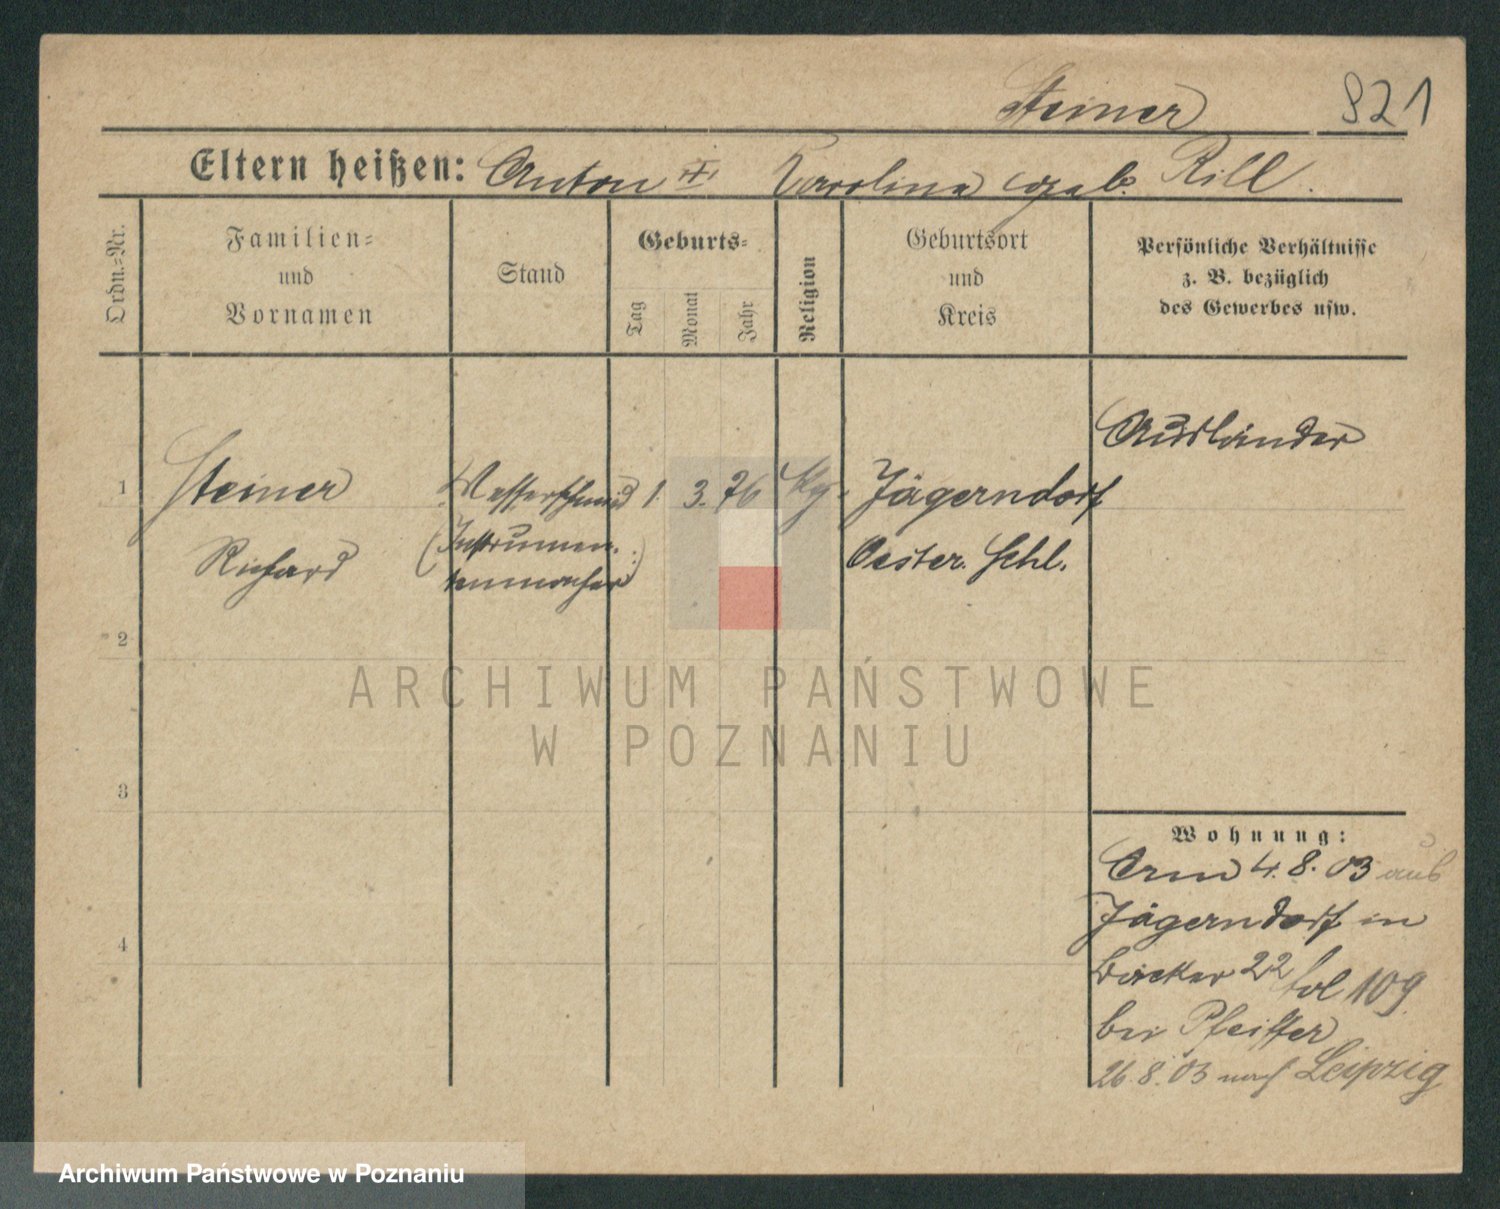 Steiner 821
Eltern heißen: Anton Karolina geb. Rill.
Ordn.-Nr.
Familien-
und
Vornamen
Stand
Geburts-
Tag
Monat
Jahr
Religion
Geburtsort
und
Kreis
Persönliche Verhältnisse
z. B. bezüglich
des Gewerbes usw.
Ausländer
1 Steiner Messerschmied 1. 3. 76 Jägerndorf
Richard (Instrumen-
tenmacher) Oester. Schl.
2
3
4
ARCHIWUM PAŃSTWOWE
W POZNANIU
Wohnung:
4. 8. 03 aus
Jägerndorf in
22 fol 109
bei Pfeiffer
26.8.03 nach Leipzig
Archiwum Państwowe w Poznaniu